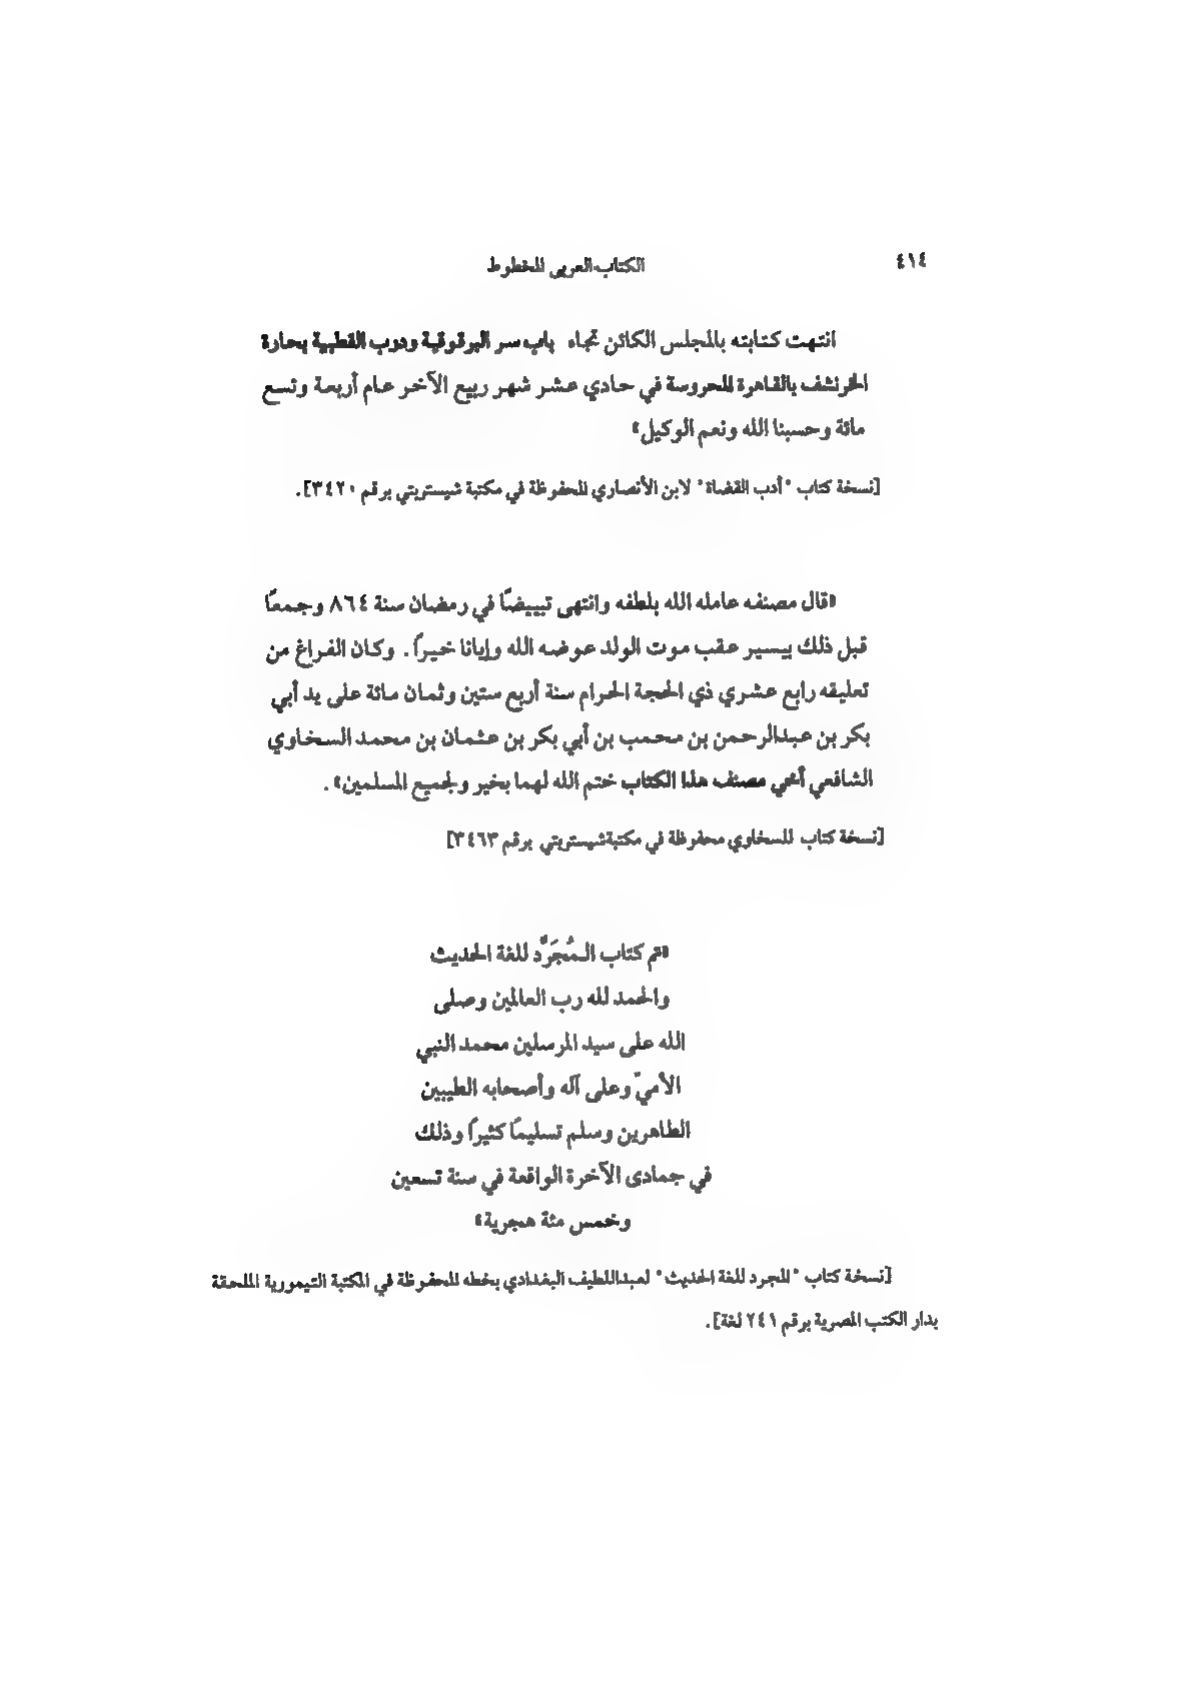 ٤١٤
الكتاب العربي المخطوط
انتهت كتابته بالمجلس الكائن تجاه باب سر البرقوقية ودرب القطبية بحارة
الخرنشف بالقاهرة المحروسة في حادي عشر شهر ربيع الآخر عام أربعة وتسع
مائة وحسبنا الله ونعم الوكيل»
[نسخة كتاب "أدب القضاة" لابن الأنصاري المحفوظة في مكتبة شيستربتي برقم ٣٤٢٠].
«قال مصنفه عامله الله بلطفه وانتهى تبييضًا في رمضان سنة ٨٦٤ وجمعًا
قبل ذلك بيسير عقب موت الولد عوضه الله وإيانا خيراً. وكان الفراغ من
تعليقه رابع عشري ذي الحجة الحرام سنة أربع ستين وثمان مائة على يد أبي
بكر بن عبدالرحمن بن محمب بن أبي بكر بن عثمان بن محمد السخاوي
الشافعي أخي مصنف هذا الكتاب ختم الله لهما بخير ولجميع المسلمين».
[نسخة كتاب للسخاوي محفوظة في مكتبة شيستربتي برقم ٣٤٦٣]
«تم كتاب المُجَرَّد للغة الحديث
والحمد لله رب العالمين وصلى
الله على سيد المرسلين محمد النبي
الأميّ وعلى آله وأصحابه الطيبين
الطاهرين وسلم تسليمًا كثيرًا وذلك
في جمادى الآخرة الواقعة في سنة تسعين
وخمس مئة هجرية»
[نسخة كتاب "المجرد للغة الحديث" لعبداللطيف البغدادي بخطه المحفوظة في المكتبة التيمورية الملحقة
بدار الكتب المصرية برقم ٢٤١ لغة].